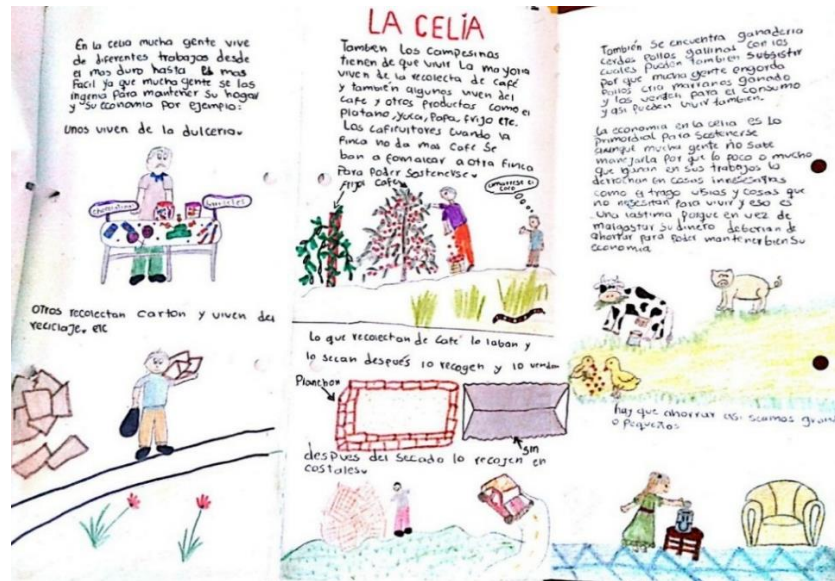 En la celia mucha gente vive
de diferentes trabajos desde
el mas duro hasta el mas
Facil ya que mucha gente se las
ingenia para mantener su hogar
y su economia por ejemplo:
unos viven de la dulceria.
chocolatinas
bananeles
Otros recolectan carton y viven del
reciclaje. etc
LA CELIA
Tambien Los campesinas
tienen de que vivir La mayoria
viven de la recolecta de café
y también algunos viven del
cafe y otros productos como el
platano, yuca, Papa, frijo etc.
Los caficultores cuando la
Finca no da mas café se
ban a a otra Finca
Para Poder Sostenerse.
Frijo
cafe
Lo que recolectan de Café lo laban y
lo secan después lo recogen y lo venden
Planchon
sin
despues del secado lo recojen en
costales.
También Se encuentra ganaderia
cerdos pollos gallinas con los
cuales pueden tambien subsistir
Por que mucha gente engorda
Pollos cria marranos ganado
y los venden para el consumo
y asi pueden vivir tambien.
La economia en la celia es lo
Primordial para Sostenerse
aunque mucha gente no sabe
manejarla Por que lo poco o mucho
que ganan en sus trabajos lo
derrochan en cosas
como el trago y cosas que
no nesesitan para vivir y eso es
una lastima Porque en vez de
malgastar su dinero deberian de
ahorrar para poder mantener bien su
economia
hay que ahorrar asi seamos gran
o pequeños